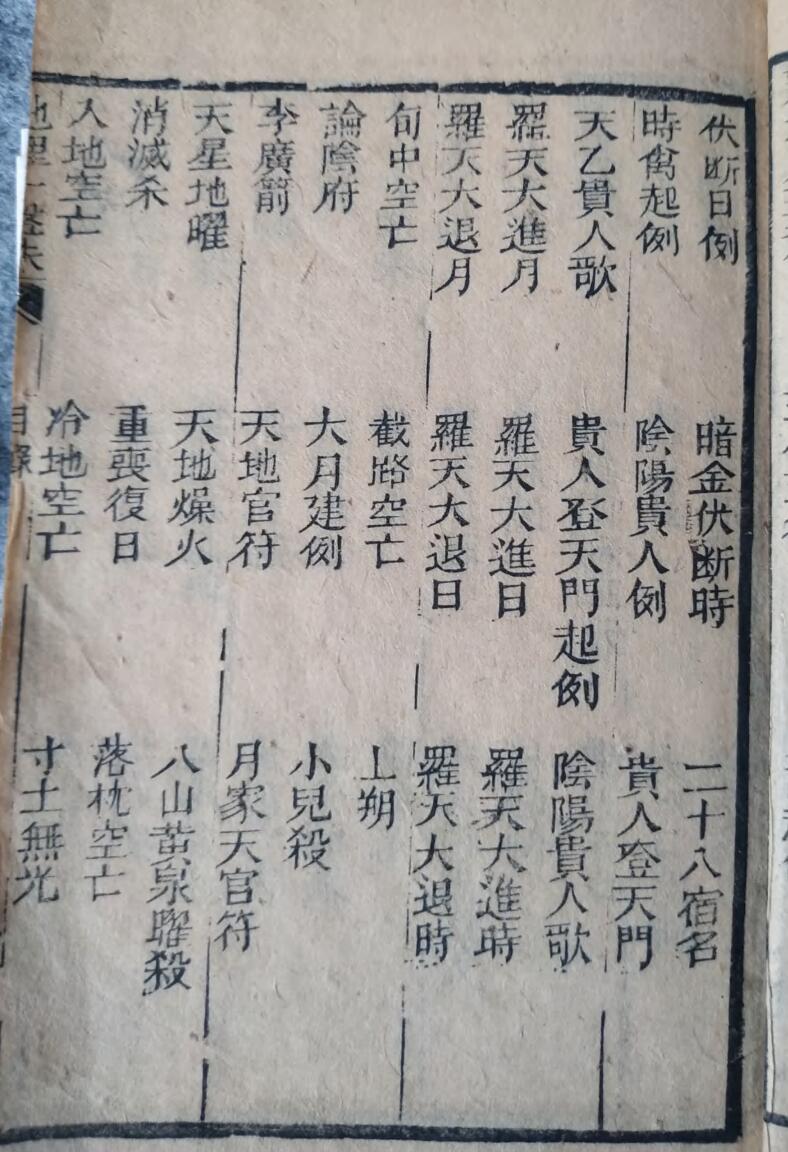 伏断日例
暗金伏断時
二十八宿名
時禽起例
陰陽貴人例
貴人登天門
天乙貴人歌
貴人登天門起例
陰陽貴人歌
羅天大進月
羅天大進日
羅天大進時
羅天大退月
羅天大退日
羅天大退時
旬中空亡
截路空亡
上朔
論陰府
大月建例
小兒殺
李廣箭
天地官符
月家天官符
天星地曜
天地燥火
八山黄泉曜殺
消滅杀
重喪復日
落枕空亡
入地空亡
冷地空亡
寸土無光
目錄